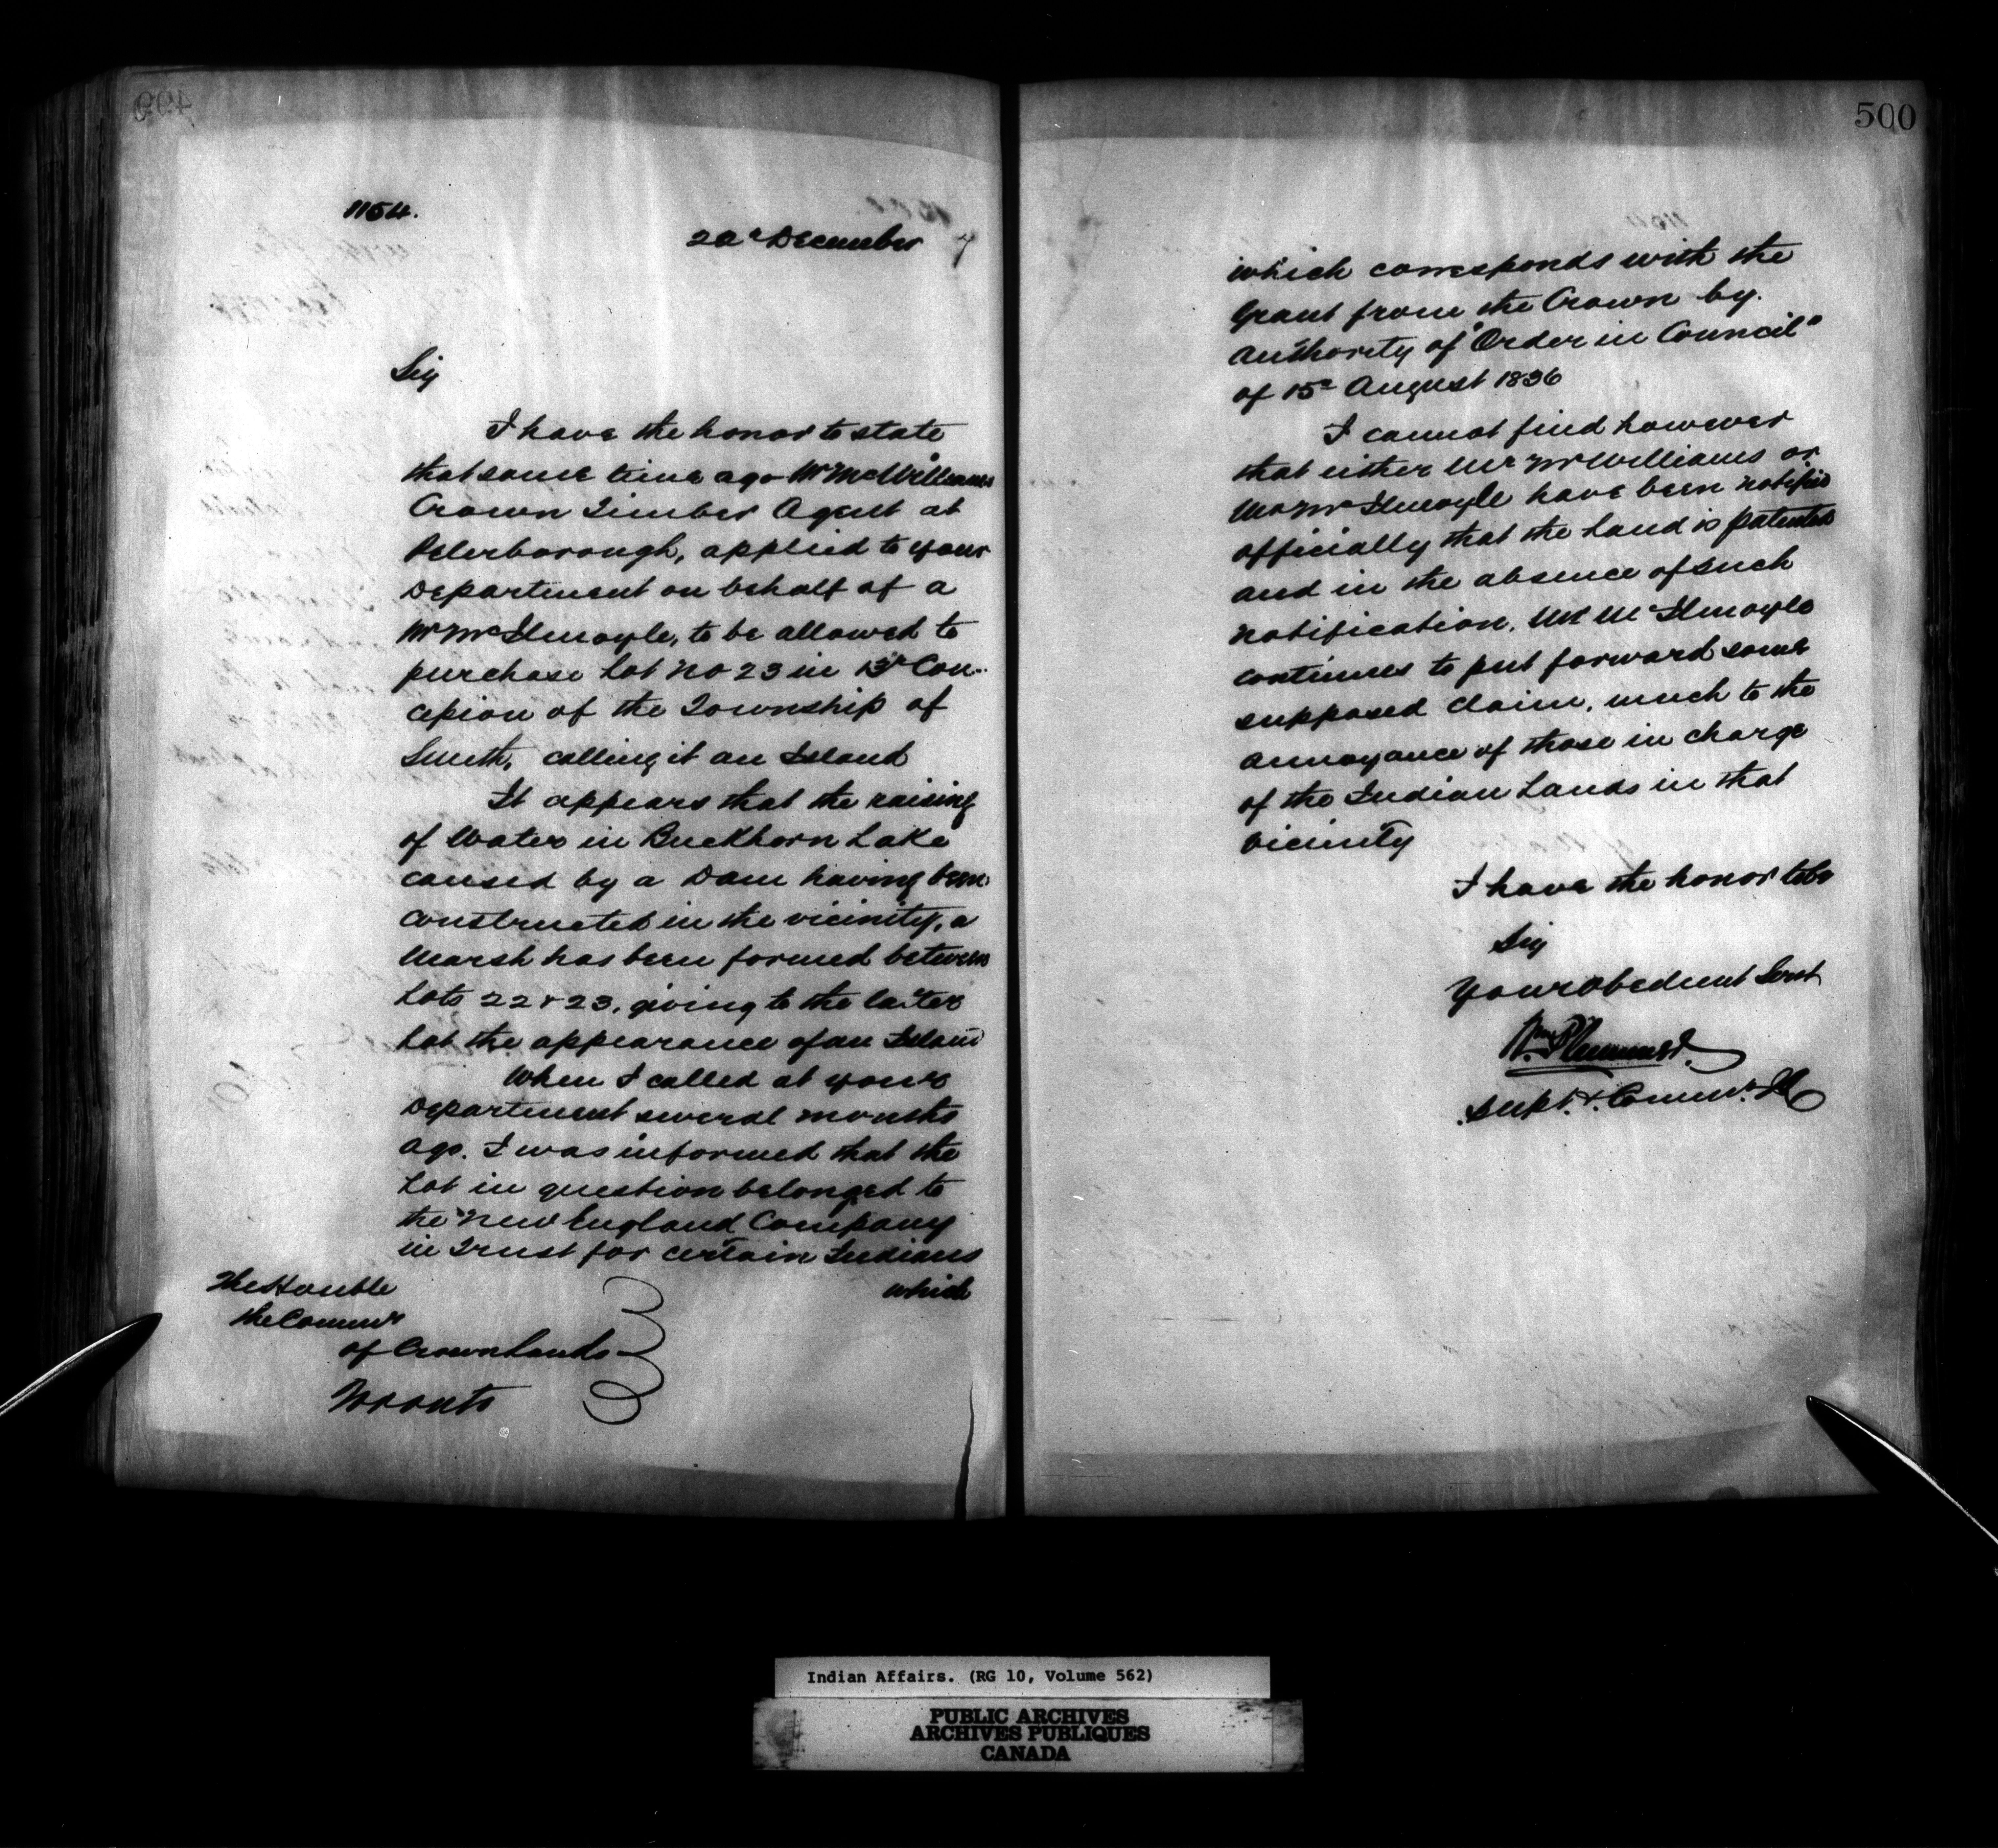 499
1154.
20th December 7
Sir
I have the honor to state
that some time ago Mr McWilliams
Crown Timber Agent at
Peterborough, applied to your
Department on behalf of a
Mr McIlmoyle, to be allowed to
purchase Lot No 23 in 13th Con-
cession of the Township of
Smith, calling it an Island
It appears that the raising
of Water in Buckhorn Lake
caused by a Dam having been
constructed in the vicinity, a
Marsh has been formed between
Lots 22 & 23, giving to the latter
Lot the appearance of an Island
When I called at your
Department several months
ago. I was informed that the
Lot in question belonged to
the New England Company
in Trust for certain Indians
which
The Honble
the Commr
of Crown Lands
Toronto
500
which corresponds with the
Grant from the Crown by
authority of "Order in Council"
of 15th August 1836
I cannot find however
that either Mr McWilliams or
Mr McIlmoyle have been notified
officially that the Land is patented
and in the absence of such
notification, Mr McIlmoyle
continues to put forward some
supposed claim, much to the
annoyance of those in charge
of the Indian Lands in that
vicinity
I have the honor to be
Sir
Your Obedient Servt
Wm Plummer
Supt. & Commr.
Indian Affairs. (RG 10, Volume 562)
PUBLIC ARCHIVES
ARCHIVES PUBLIQUES
CANADA